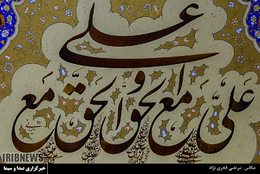 علی مع الحق و الحق مع علی
IRIBNEWS
خبرگزاری صدا و سیما
عکاس : مرتضی فخری نژاد